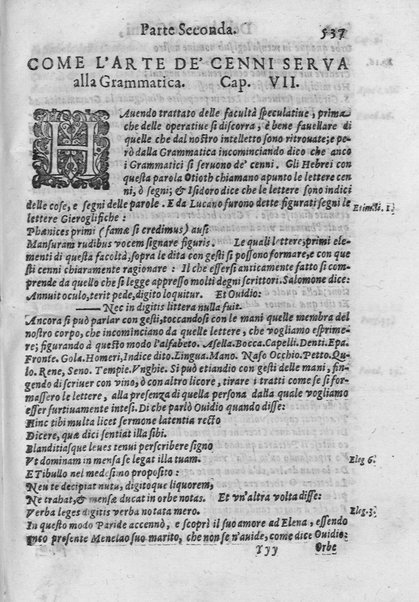 Parte Seconda. 537
COME L'ARTE DE' CENNI SERVA
alla Grammatica. Cap. VII.
HAuendo trattato delle facultà speculatiue, prima
che delle operatiue si discorra, è bene fauellare di
quelle che dal nostro intelletto sono ritrouate; e però
dalla Grammatica incominciando dico che anco
i Grammatici si seruono de' cenni. Gli Hebrei con
questa parola Otioth chiamano apunto le lettere cenni,
ò segni; & Isidoro dice che le lettere sono indici
delle cose, e segni delle parole. E da Lucano furono dette figurati segni le Etimoli. 1.
lettere Gieroglifiche:
Phœnices primi (famæ si credimus) ausi
Mansuram rudibus vocem signare figuris. Le quali lettere, primi elementi
di questa facoltà, sopra le dita con gesti si possono formare, e con questi
cenni chiaramente ragionare: Il che essersi anticamente fatto si comprende
da quello che si legge appresso molti degni scrittori. Salomone dice:
Annuit oculo, terit pede, digito loquitur. Et Ouidio:
— Nec in digitis littera nulla fuit.
Ancora si può parlar con gesti, toccandosi con le mani quelle membra del
nostro corpo, che incominciano da quelle lettere, che vogliamo esprimere;
figurando à questo modo l'alfabeto. Asella. Bocca. Capelli. Denti. Epa.
Fronte. Gola. Homeri, Indice dito. Lingua. Mano. Naso Occhio. Petto. Qulo.
Rene, Seno. Tempie. Vnghie. Si può etiandio con gesti delle mani, fingendo
di scriuer con vino, ò con altro licore, tirare i tratti come se si formassero
le lettere, alla presenza di quella persona dalla quale vogliamo
esser furtiuamente intesi. Di che parlò Ouidio quando disse:
Hinc tibi multa licet sermone latentia tecto
Dicere, quæ dici sentiat illa sibi.
Blanditiasque leues tenui perscribere signo
Vt dominam in mensa se legat illa tuam.
E Tibullo nel medesimo proposito: Eleg 6.
Neu te decipiat nutu, digitoque liquorem,
Ne trahat, & mensæ ducat in orbe notas. Et vn'altra volta disse:
Verba leges digitis verba notata mero. Eleg. 3.
In questo modo Paride accennò, e scoprì il suo amore ad Elena, essendo
iui presente Menelao suo marito, che non se n'auide, come dice Ouidio:
Yyy Orbe